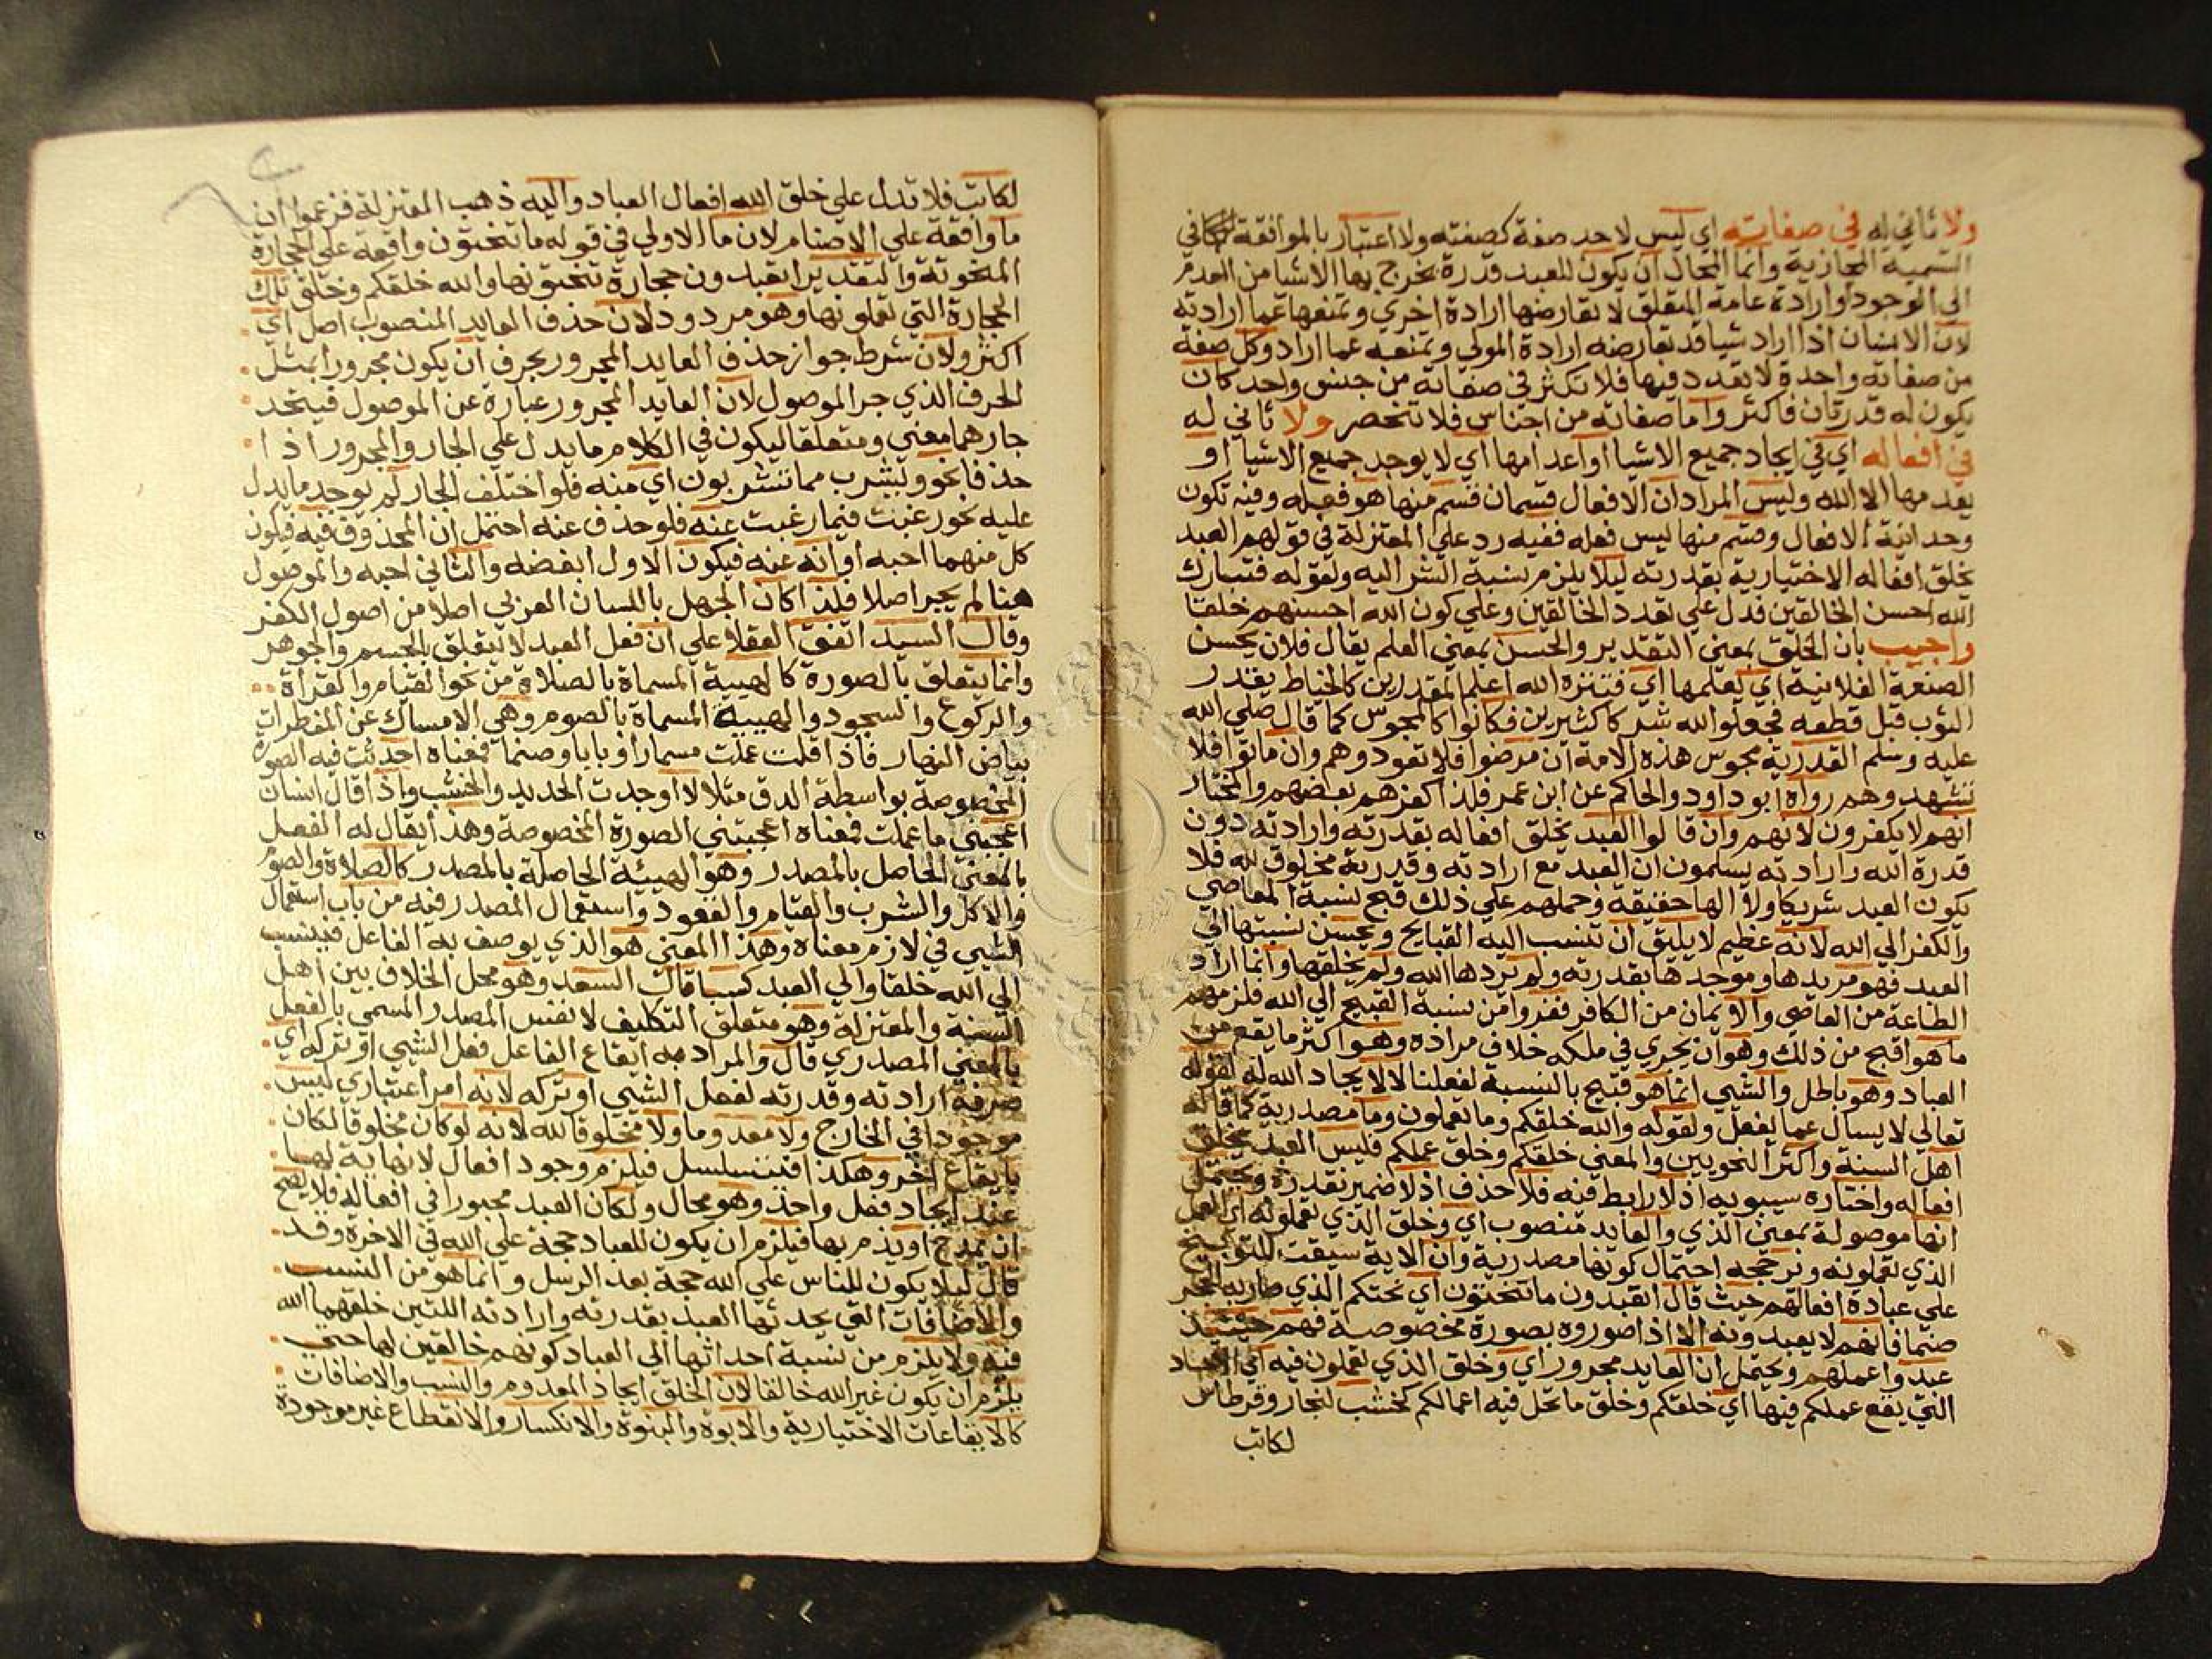 ولا ثاني له في صفاته اي ليس لاحد صفة كصفته ولا اعتبار بالموافقة في
التسمية المجازية وانما المحال ان يكون للعبد قدرة يخرج بها الاشيا من العدم
الي الوجود وارادة عامة التعلق لا تعارضها ارادة اخري وتمنعها عما ارادته
لان الانسان اذا اراد شيا قد تعارضه ارادة المولي وتمنعه عما اراد وكل صفة
من صفاته واحدة لا تعدد فيها فلا تكثر في صفاته من جنس واحد كان
يكون له قدرتان فاكثر واما صفاته من اجناس فلا تنحصر ولا ثاني له
في افعاله اي في ايجاد جميع الاشيا او اعدامها اي لا يوجد جميع الاشيا او
يعدمها الا الله وليس المراد ان الافعال قسمان قسم منها هو فعله وفيه تكون
وحدانية الافعال وقسم منها ليس فعله ففيه رد علي المعتزلة في قولهم العبد
يخلق افعاله الاختيارية بقدرته ليلا يلزم نسبة الشر اليه ولقوله فتبارك
الله احسن الخالقين فدل علي تعدد الخالقين وعلي كون الله احسنهم خلقا
واجيب بان الخلق بمعني التقدير والحسن بمعني العلم يقال فلان يحسن
الصنعة الفلانية اي يعلمها اي فتنزه الله اعلم المقدرين كالخياط يقدر
الثوب قبل قطعه فجعلوا لله شركا كثيرين فكانوا كالمجوس كما قال صلي الله
عليه وسلم القدرية مجوس هذه الامة ان مرضوا فلا تعودوهم وان ماتوا فلا
تشهدوهم رواه ابو داود والحاكم عن ابن عمر فلذا كفرهم بعضهم والمختار
انهم لا يكفرون لانهم وان قالوا العبد يخلق افعاله بقدرته وارادته دون
قدرة الله وارادته يسلمون ان العبد مع ارادته وقدرته مخلوق لله فلا
يكون العبد شريكا ولا الها حقيقة وحملهم علي ذلك قبح نسبة المعاصي
والكفر الي الله لانه عظيم لا يليق ان تنسب اليه القبايح ويحسن نسبتها الي
العبد فهو مريدها وموجدها بقدرته ولم يردها الله ولم يخلقها وانما اراد
الطاعة من العاصي والايمان من الكافر ففروا من نسبة القبيح الي الله فلزمهم
ما هو اقبح من ذلك وهو ان يجري في ملكه خلاف مراده وهو اكثر ما يقع من
العباد وهو باطل والشي انما هو قبيح بالنسبة لفعلنا لا لايجاد الله له لقوله
تعالي لا يسأل عما يفعل ولقوله والله خلقكم وما تعملون وما مصدرية كما قاله
اهل السنة واكثر النحويين والمعني خلقكم وخلق عملكم فليس العبد يخلق
افعاله واختاره سيبويه اذ لا رابط فيه فلا حذف اذ لا ضمير نقدره ويحتمل
انها موصولة بمعني الذي والعايد منصوب اي وخلق الذي تعملونه اي العمل
الذي تعملونه ونرجحه احتمال كونها مصدرية وان الاية سيقت للتوبيخ
علي عبادة افعالهم حيث قال اتعبدون ما تنحتون اي نحتكم الذي صار به الحجر
صنما فانهم لا يعبدونه الا اذا صوروه بصورة مخصوصة فهم حينئذ
عبدوا عملهم ويحتمل ان العايد مجرور اي وخلق الذي تعملون فيه اي
التي يقع عملكم فيها اي خلقكم وخلق ما تحل فيه اعمالكم كخشب لنجار وقرطاس
لكاتب
لكاتب فلا تدل علي خلق الله افعال العباد واليه ذهب المعتزلة فزعموا ان
ما واقعة علي الاصنام لان ما الاولي في قوله ما تنحتون واقعة علي الحجارة
المنحوتة والتقدير اتعبدون حجارة تنحتونها والله خلقكم وخلق تلك
الحجارة التي تعملونها وهو مردود لان حذف العايد المنصوب اصل اي
اكثر ولان شرط جواز حذف العايد المجرور بحرف ان يكون مجرورا بمثل
الحرف الذي جر الموصول لان العايد المجرور عبارة عن الموصول فيتحد
جارهما معني ومتعلقا ليكون في الكلام ما يدل علي الجار والمجرور اذا
حذفا نحو ويشرب مما تشربون اي منه فلو اختلف الجار لم يوجد ما يدل
عليه نحو رغبت فيما رغبت عنه فلو حذف عنه احتمل ان المحذوف فيه فيكون
كل منهما احبه او انه عنه فيكون الاول ابغضه والثاني احبه والموصول
هنا لم يجر اصلا فلذا كان الجهل باللسان العربي اصلا من اصول الكفر
وقال السيد اتفق العقلا علي ان فعل العبد لا يتعلق بالجسم والجوهر
وانما يتعلق بالصورة كالهيية المسماة بالصلاة من نحو القيام والقراة
والركوع والسجود والهيية المسماة بالصوم وهي الامساك عن المفطرات
بياض النهار فاذا قلت عملت مسمارا او بابا وصنما فمعناه احدثت فيه الصورة
المخصوصة بواسطة الدق مثلا لا اوجدت الحديد والخشب واذا قال انسان
اعجبني ما عملت فمعناه اعجبتني الصورة المخصوصة وهذا يقال له الفعل
بالمعني الحاصل بالمصدر وهو الهيئة الحاصلة بالمصدر كالصلاة والصوم
والاكل والشرب والقيام والقعود واستعمال المصدر فيه من باب استعمال
الشي في لازم معناه وهذا المعني هو الذي يوصف به الفاعل فينسب
الي الله خلقا والي العبد كسبا قال السعد وهو محل الخلاف بين اهل
السنة والمعتزلة وهو متعلق التكليف لا نفس المصدر المسمي بالفعل
بالمعني المصدري قال والمراد به ايقاع الفاعل فعل الشي او تركه اي
صرفه ارادته وقدرته لفعل الشي او تركه لانه امر اعتباري ليس
موجودا في الخارج ولا معدوما ولا مخلوقا لله لانه لو كان مخلوقا لكان
بايقاع اخر وهكذا فيتسلسل فيلزم وجود افعال لا نهاية لها
عند ايجاد فعل واحد وهو محال ولكان العبد مجبورا في افعاله فلا يصح
ان يمدح او يذم بها فيلزم ان يكون للعباد حجة علي الله في الاخرة وقد
قال ليلا يكون للناس علي الله حجة بعد الرسل وانما هو من النسب
والاضافات التي يحدثها العبد بقدرته وارادته اللتين خلقهما الله
فيه ولا يلزم من نسبة احداثها الي العباد كونهم خالقين لها حتي
يلزم ان يكون غير الله خالقا لان الخلق ايجاد المعدوم والنسب والاضافات
كالايقاعات الاختيارية والابوة والبنوة والانكسار والانقطاع غير موجودة